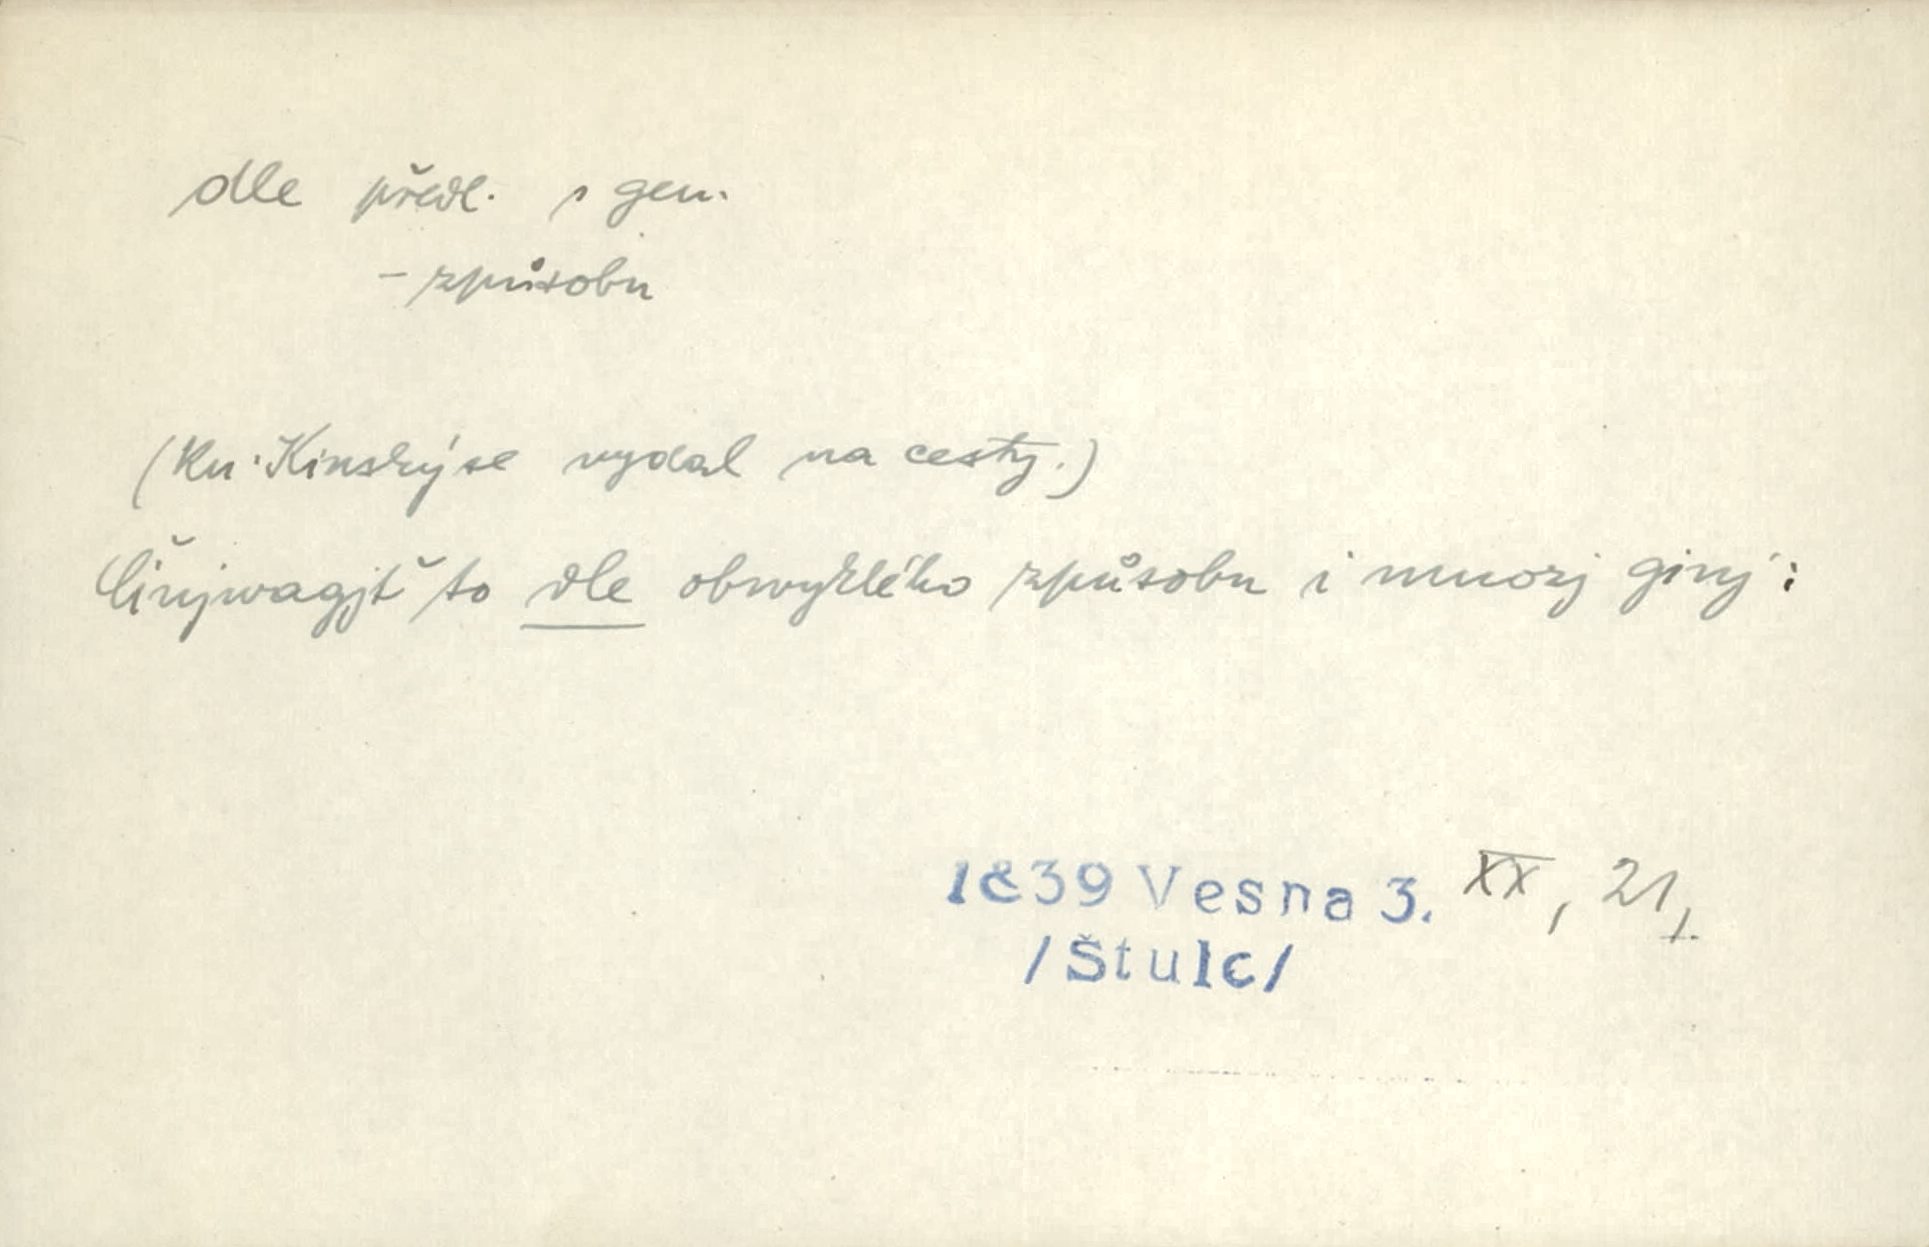 dle předl. s gen.
– způsobu
(Kn. Kinský se vydal na cesty.)
Činjwagjť to dle obwyklého způsobu i mnozj ginj:
1839 Vesna 3. XX, 21,
/Štulc/